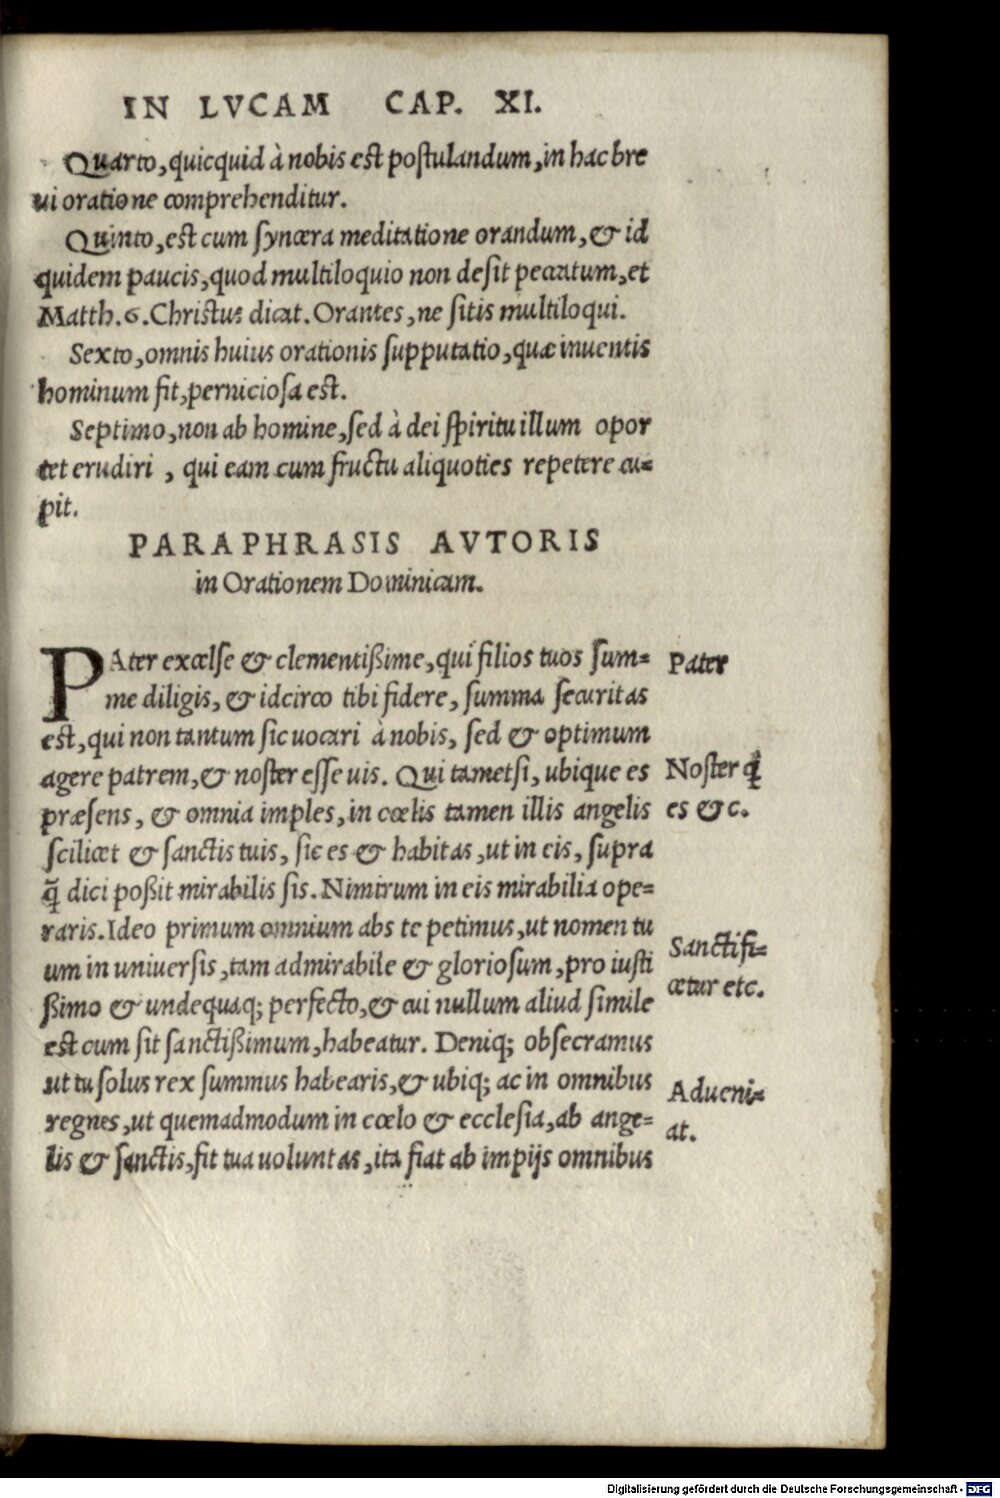 IN LVCAM CAP. XI.
Quarto, quicquid à nobis est postulandum, in hac bre
ui oratione comprehenditur.
Quinto, est cum syncera meditatione orandum, & id
quidem paucis, quod multiloquio non desit peccatum, et
Matth. 6. Christus dicat. Orantes, ne sitis multiloqui.
Sexto, omnis huius orationis supputatio, quæ inuentis
hominum fit, perniciosa est.
Septimo, non ab homine, sed à dei spiritu illum opor
tet erudiri, qui eam cum fructu aliquoties repetere cu=
pit.
PARAPHRASIS AVTORIS
in Orationem Dominicam.
PAter excelse & clementißime, qui filios tuos sum=
me diligis, & idcirco tibi fidere, summa securitas
est, qui non tantum sic uocari à nobis, sed & optimum
agere patrem, & noster esse uis. Qui tametsi, ubique es
præsens, & omnia imples, in cœlis tamen illis angelis
scilicet & sanctis tuis, sic es & habitas, ut in eis, supra
q̃ dici poßit mirabilis sis. Nimirum in eis mirabilia ope=
raris. Ideo primum omnium abs te petimus, ut nomen tu
um in uniuersis, tam admirabile & gloriosum, pro iusti
ßimo & undequaq; perfecto, & cui nullum aliud simile
est cum sit sanctißimum, habeatur. Deniq; obsecramus
ut tu solus rex summus habearis, & ubiq; ac in omnibus
regnes, ut quemadmodum in cœlo & ecclesia, ab ange=
lis & sanctis, fit tua uoluntas, ita fiat ab impijs omnibus
Pater
Noster q̇
es & c.
Sanctifi=
cetur etc.
Adueni=
at.
Digitalisierung gefördert durch die Deutsche Forschungsgemeinschaft - DFG